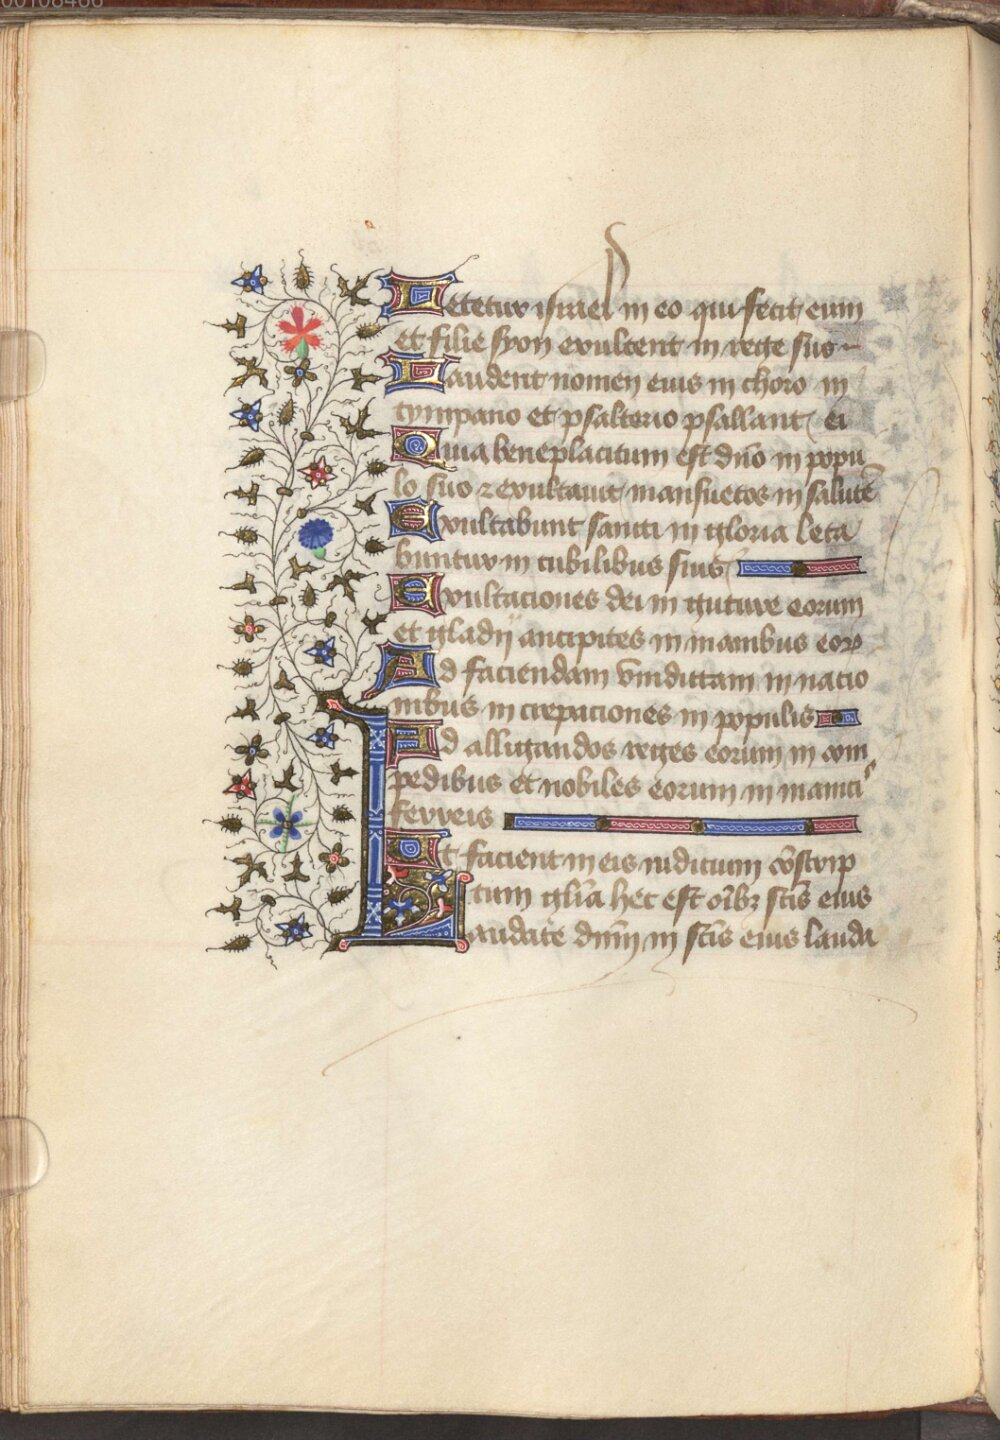 00108466
Letetur israel in eo qui fecit eum
et filie syon exultent in rege suo
Laudent nomen eius in choro in
tympano et psalterio psallant ei
Quia beneplacitum est dño in popu
lo suo ⁊ exultauit mansuetos in salutē
Exultabunt sancti in gloria leta
buntur in cubilibus suis
Exultaciones dei in guture eorum
et gladij ancipites in manibus eoꝝ
Ad faciendam vindictam in nacio
nibus in crepaciones in populis
Ad alligandos reges eorum in com
pedibus et nobiles eorum in manicis
ferreis
Ut facient in eis iudicium cōscrip
tum glīa hec est oībꝫ scīs eius
Laudate dn̄m in scīs eius lauda